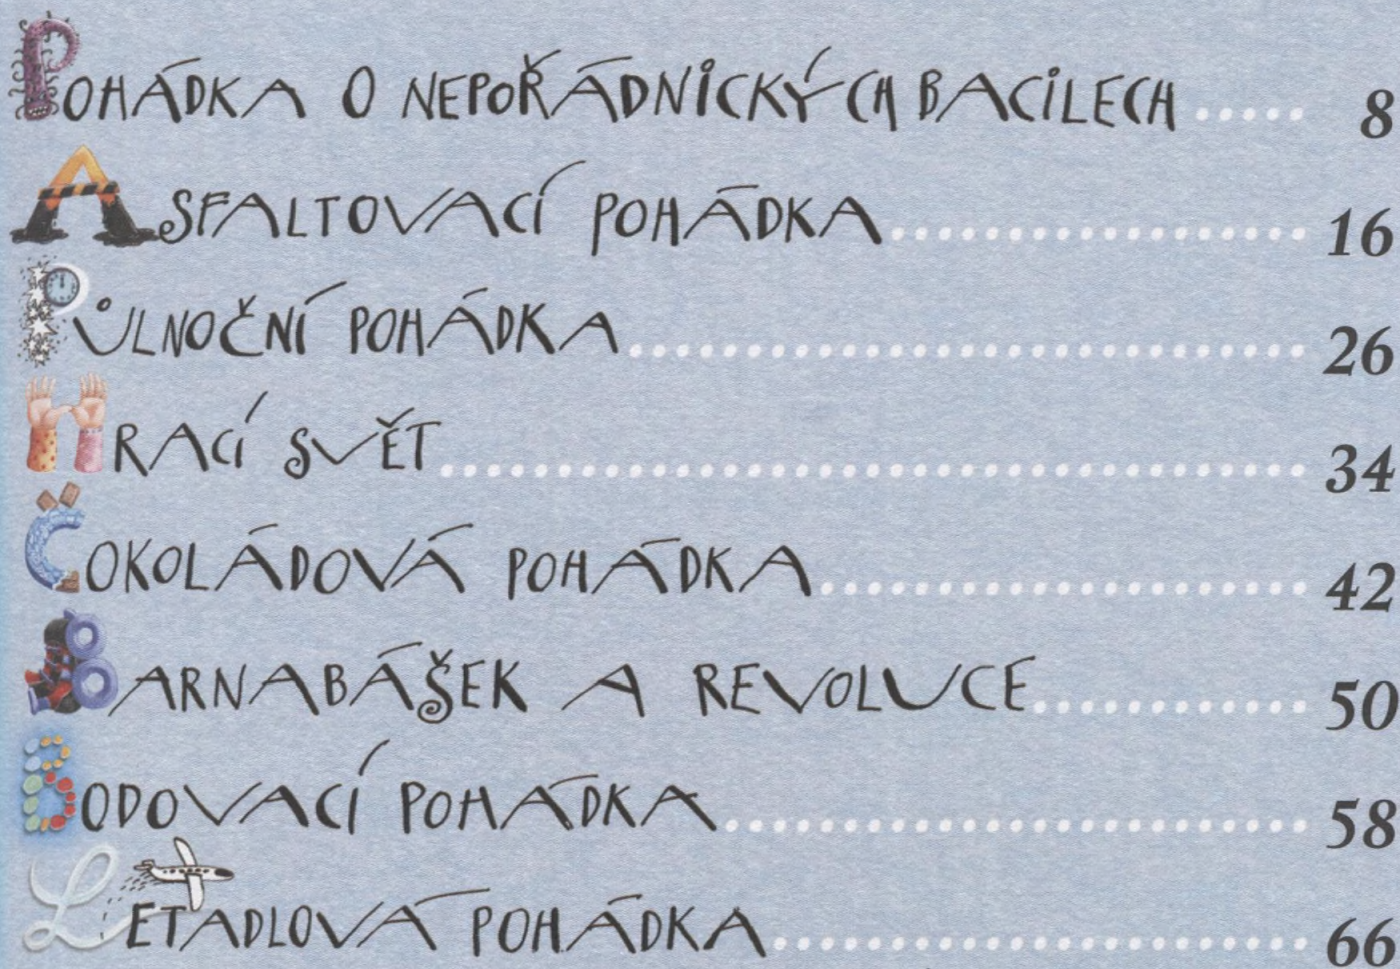 POHÁDKA O NEPOŘÁDNICKÝCH BACILECH ..... 8
ASFALTOVACÍ POHÁDKA .................. 16
PŮLNOČNÍ POHÁDKA ............................. 26
HRACÍ SVĚT ..................................... 34
ČOKOLÁDOVÁ POHÁDKA ..................... 42
BARNABÁŠEK A REVOLUCE ............ 50
BODOVACÍ POHÁDKA ......................... 58
LETADLOVÁ POHÁDKA ....................... 66